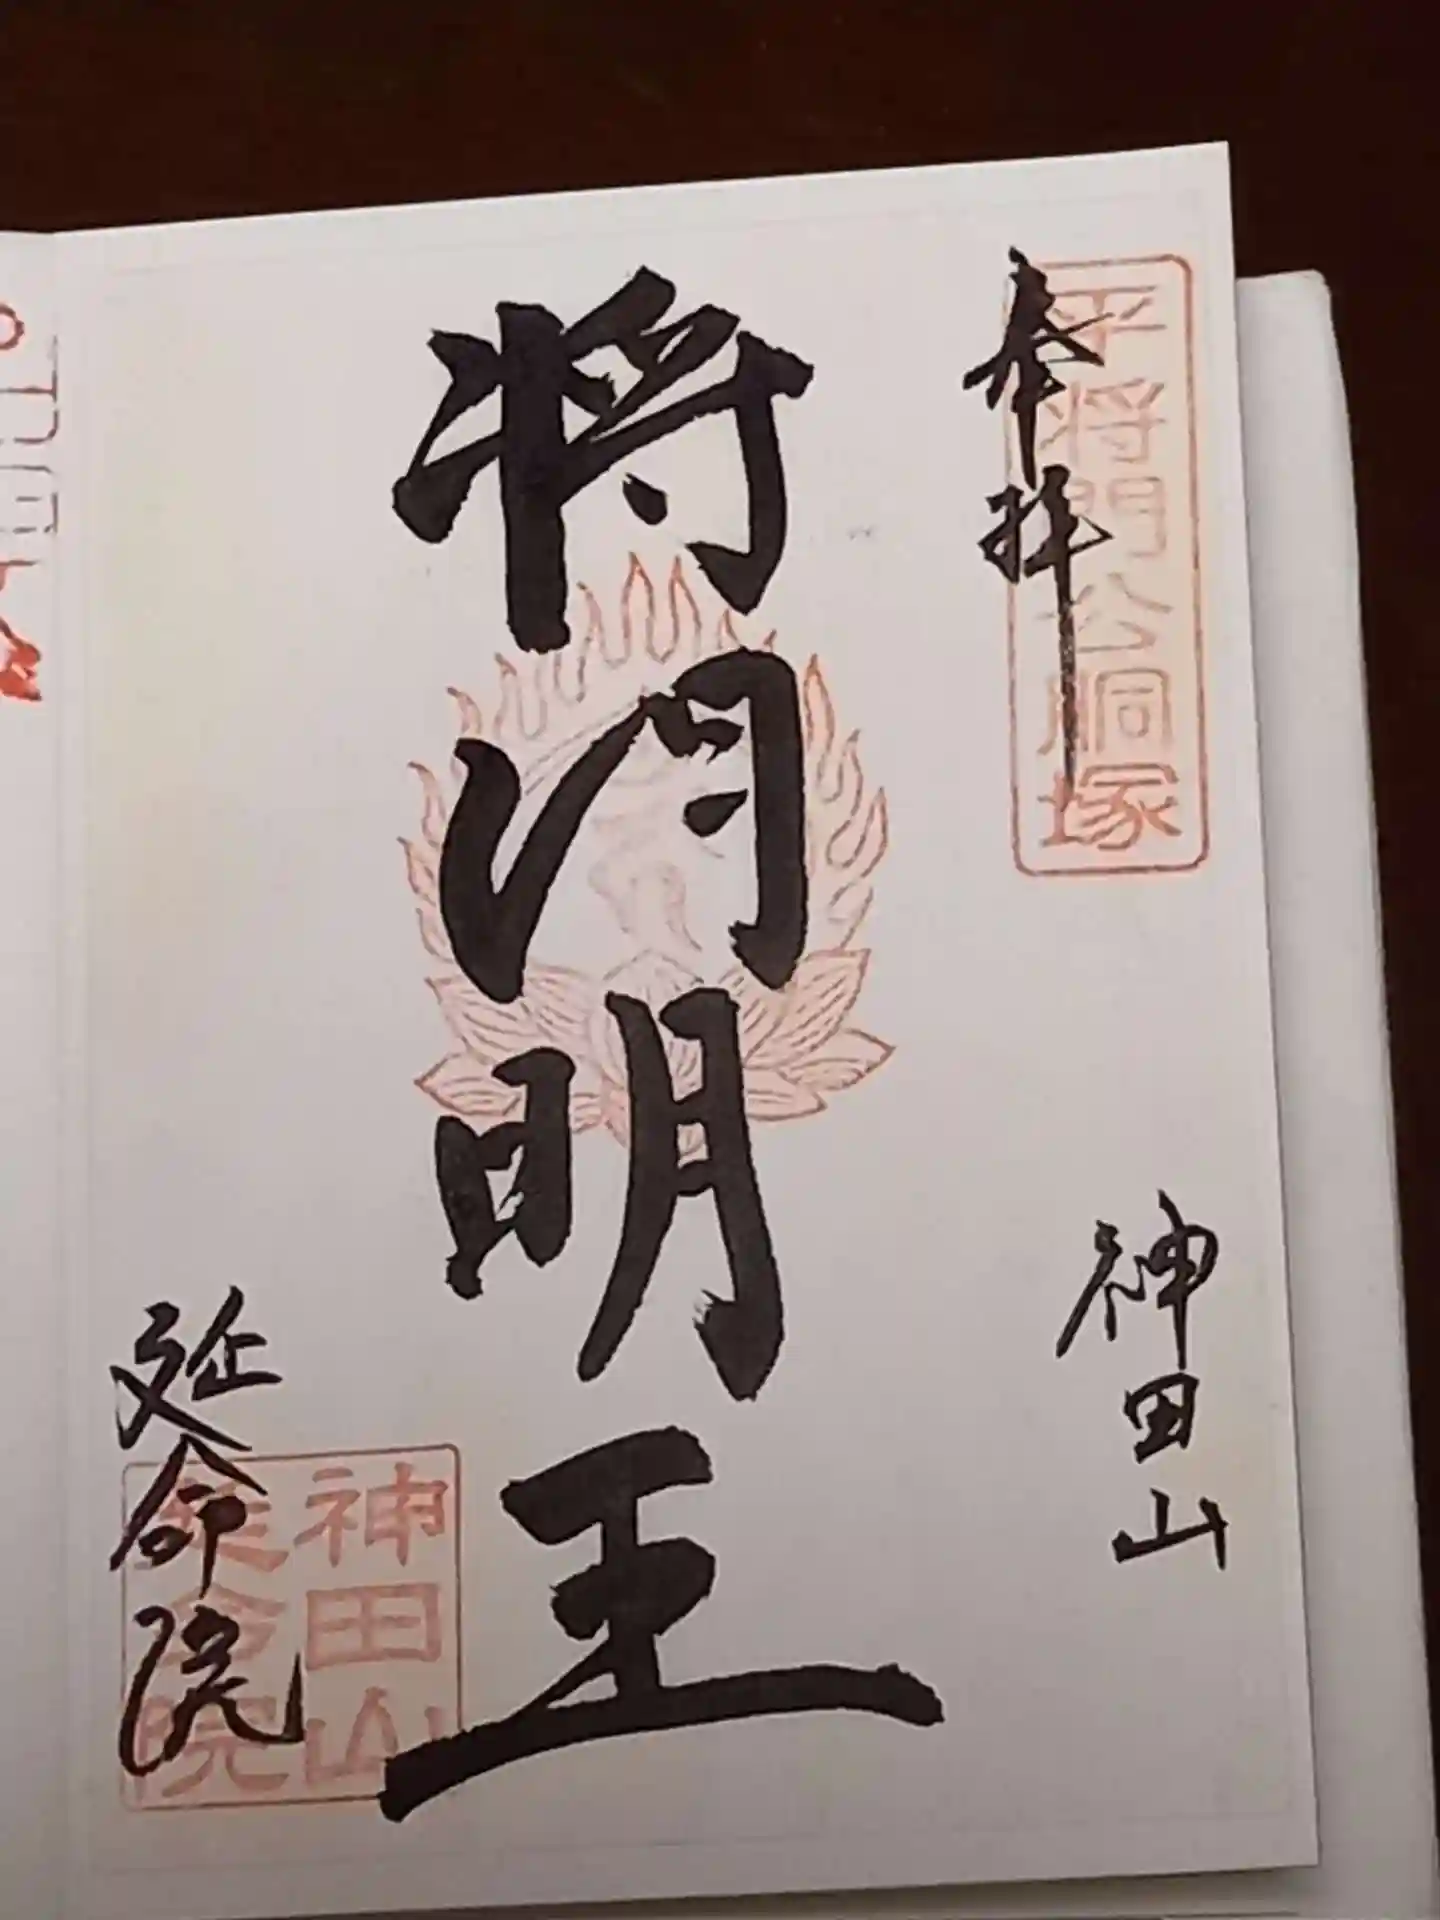 奉拝
平将門公胴塚
神田山
将門明王
延命院
神田山
延命院